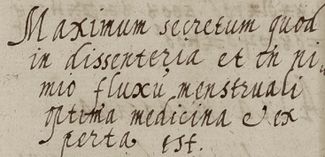 Maximum secretum quod
in dissenteria et in ni
mio fluxu menstruali
optima medicina & ex
perta est.